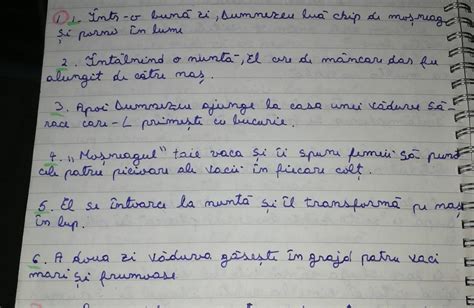 1 1. Într-o bună zi, Dumnezeu luă chip de moșneag
și porni în lume
2. Întâlnind o nuntă, El cere de mâncare dar fu
alungit de către naș.
3. Apoi Dumnezeu ajunge la casa unei văduve să-
race care-L primește cu bucurie.
4. „Moșneagul" taie vaca și îi spune femeii să pună
cele patru picioare ale vacii în fiecare colț.
5. El se întoarce la nuntă și îl transformă pe naș
în lup.
6. A doua zi văduva găsește în grajd patru vaci
mari și frumoase
7